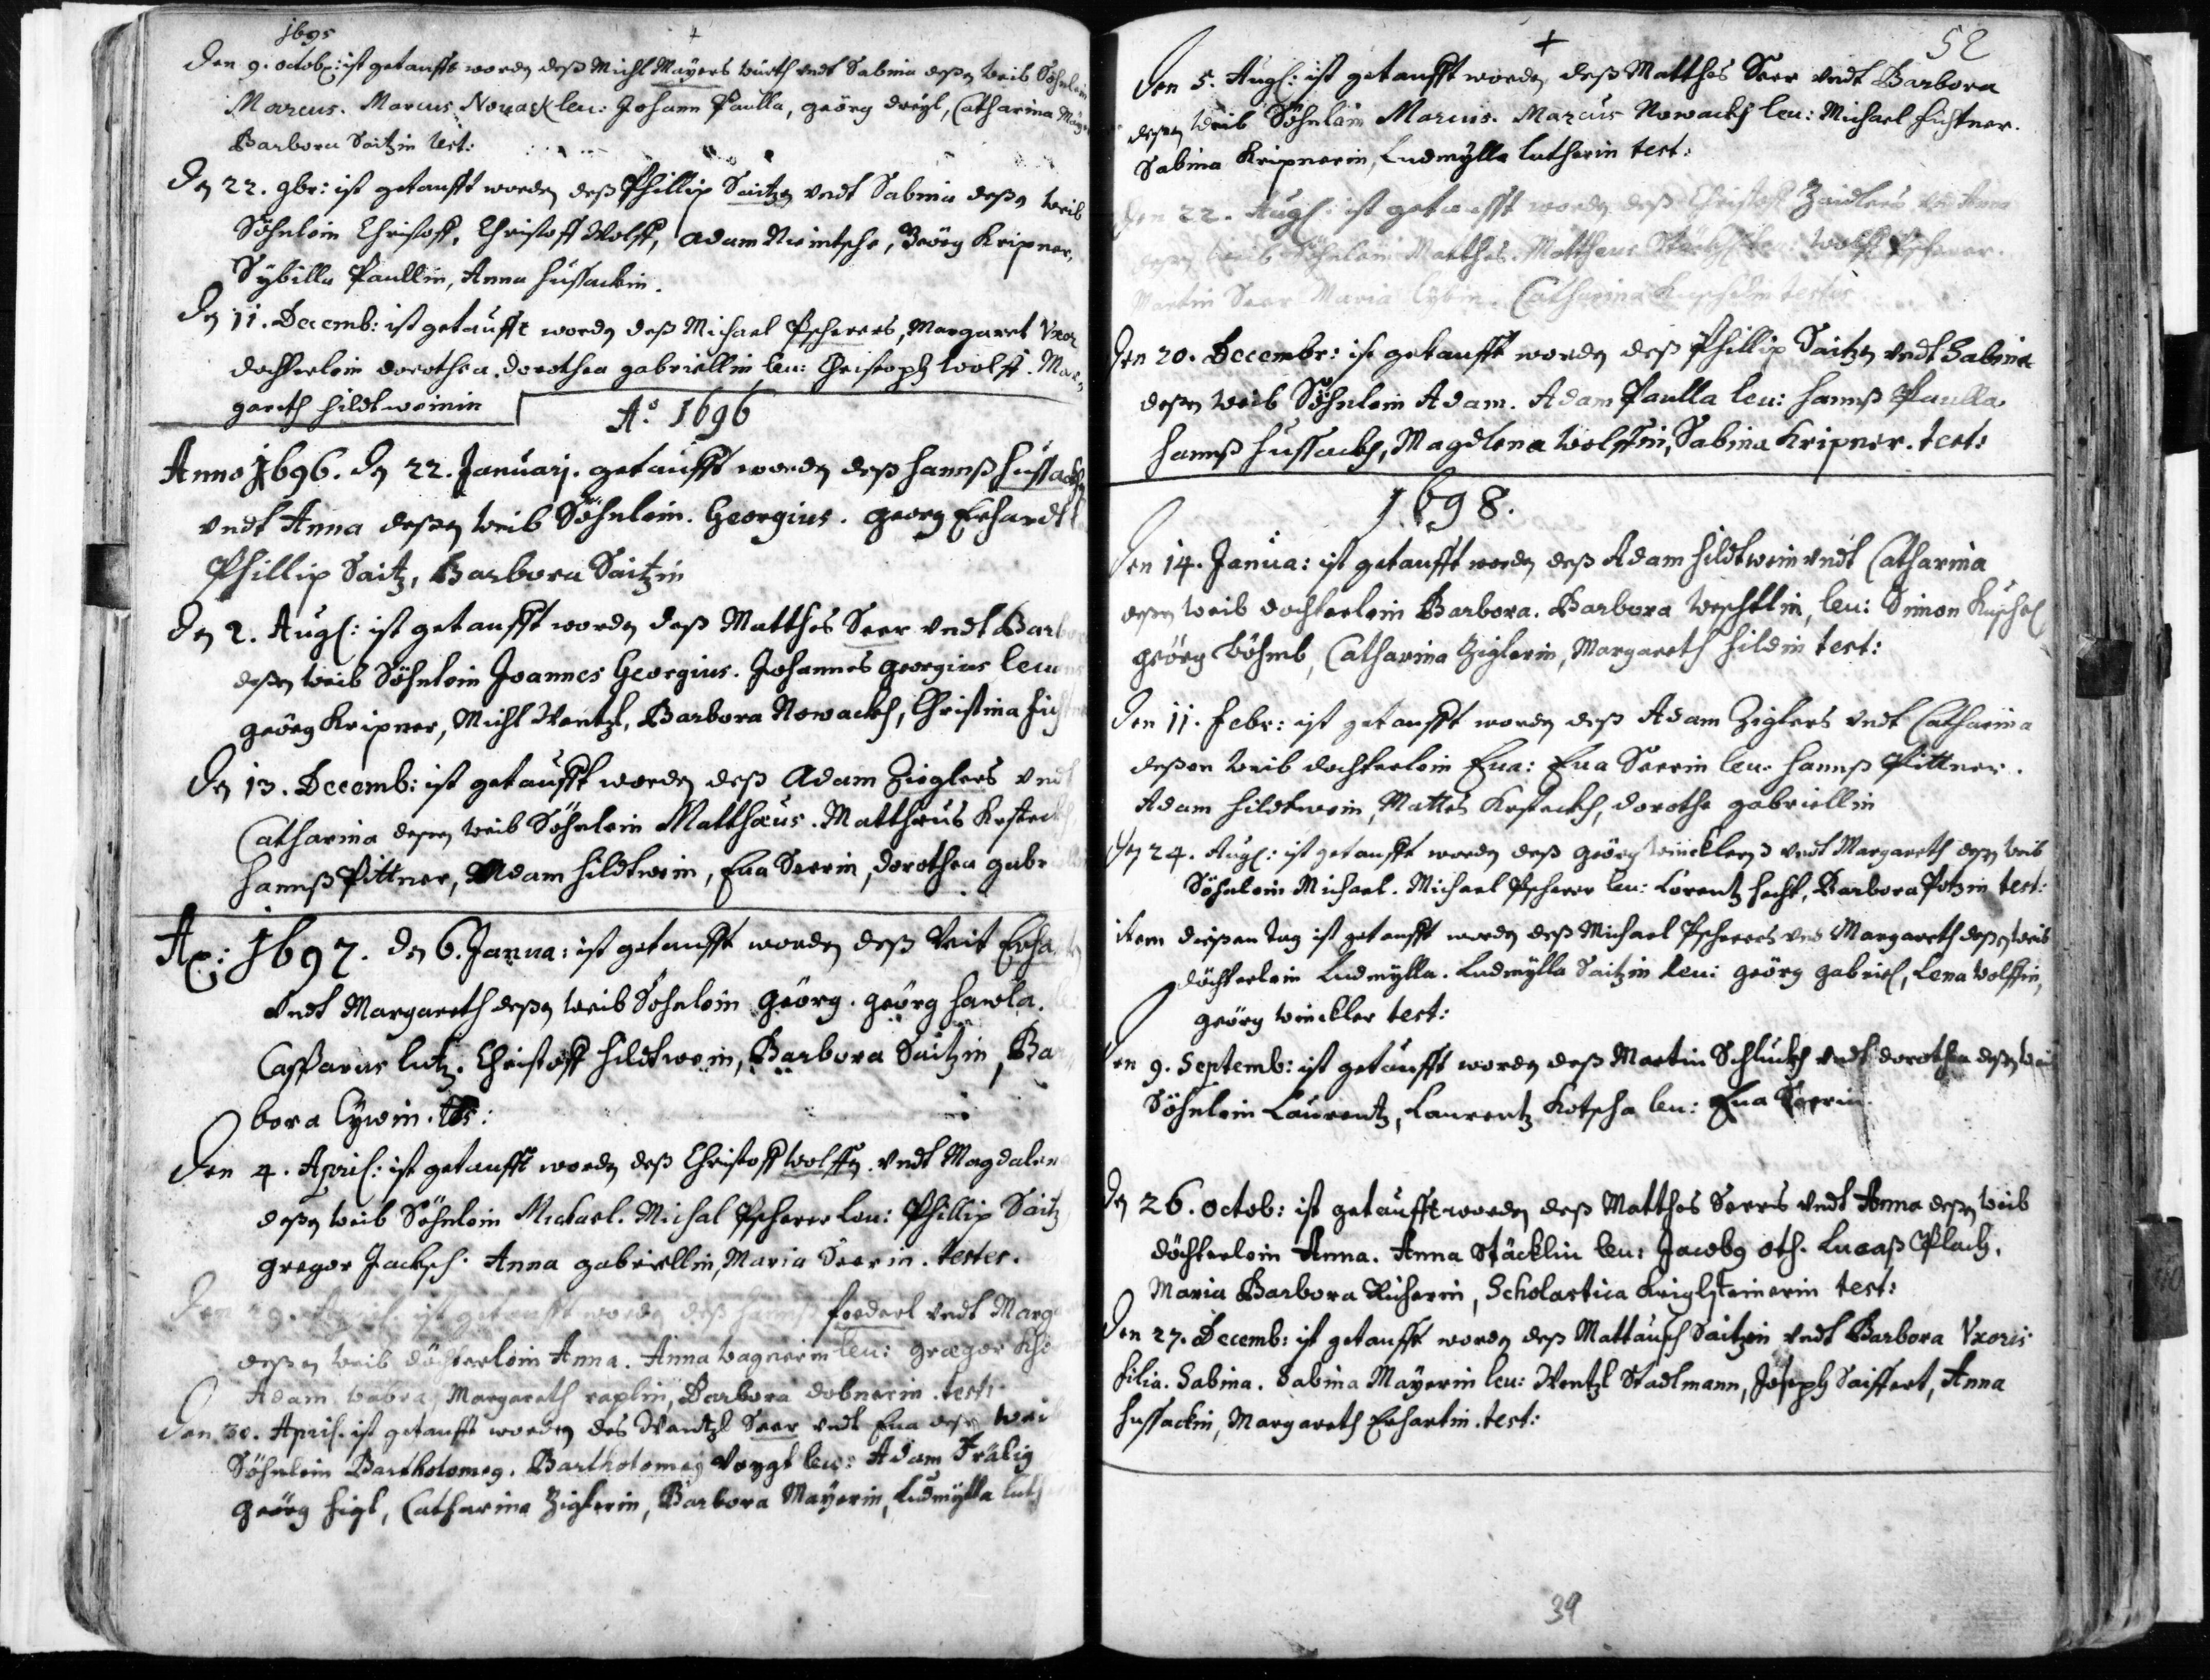 1695
Den 9. octob: ist getaufft worden deß Michl Mayers Würth vndt Sabina deßen weib Söhnlein
Marcus. Marcus Nouack leu: Johann Paulla, geörg dreyl, Catharina
Barbora Saitzin test:
Den 22. 9br: ist getaufft worden deß Phillip Saitzen vndt Sabina deßen weib
Söhnlein Christoff. Christoff Wolff, Adam Nimtsche, Geörg Kripner,
Sybilla Paullin, Anna Hussackin.
Den 11. Decemb: ist getaufft worden deß Michael Pscherers, Margaret Vxor
dochterlein dorothea. dorothea gabriellin leu: Christoph Wolff. Mar-
gareth hildtweinin
Aō 1696
Anno 1696. Den 22. Januarj. getaufft worden deß hannß hussackh
vndt Anna deßen weib Söhnlein. Georgius. georg Erhardt
Phillip Saitz, Barbora Saitzin
Den 2. Aug: ist getaufft worden deß Matthes Seer vndt Barbor
deßen weib Söhnlein Joannes Georgius. Johannes Georgius
geörg Kripner, Michl Wentzl, Barbora Nowackh, Christina
Den 13. Decemb: ist getaufft worden deß Adam Zieglers vndt
Catharina deßen weib Söhnlein Matthæus. Matthæus
hannß Pittner, Adam hildtwein, Eua Seerin, dorothea gabr
1697. Den 6. Janua: ist getaufft worden deß Veit
vndt Margareth deßen weib Söhnlein geörg. geörg hawla.
Casparus lutz. Christoff hildtwein, Barbora Saitzin, Ba
bora Cywin. tes:
Den 4. April: ist getaufft worden deß Christoff Wolffen vndt Magdalena
deßen weib Söhnlein Michael. Michal Pscherer leu: Phillip Saitz
gregor Jacksch. Anna gabriellin, Maria Seerin. testes.
Den 29. April. ist getaufft worden deß hannß foederl vndt Marg
deßen weib döchterlein Anna. Anna Wagnerin leu: gregor
Adam wabra, Margareth raplin, Barbora dobnerin. test:
Den 30. April. ist getaufft worden des Wentzl Seer vndt Eua deßen weib
Söhnlein Bartholomeg. Bartholomeg Voygt leu: Adam Frälig
geörg figl, Catharina Ziglerin, Barbora Mayerin, Ludmylla
52
Den 5. Aug: ist getaufft worden deß Matthes Seer vndt Barbora
deßen weib Söhnlein Marcus. Marcus Nowackh leu: Michael fichtner.
Sabina Kripnerin, Ludmylla lutherin test:
Den 22. Aug: ist getaufft worden deß Christoff Zeidlers Anna
deßen weib Söhnlein Matthes. Mattheus Wolff Pscherer.
Martin Seer Maria Cybin. Catharina testes
Den 20. Decembr: ist getaufft worden deß Phillip Saitzen vndt Sabina
deßen weib Söhnlein Adam. Adam Paulla leu: hannß Paulla
hannß hussackh, Magdlena Wolffin, Sabina Kripner. test:
1698.
Den 14. Janua: ist getaufft worden deß Adam hildtwein vndt Catharina
deßen weib dochterlein Barbora. Barbora leu: Simon Kuschel
geörg Böhmb, Catharina Ziglerin, Margareth hildin test:
Den 11. Febr: ist getaufft worden deß Adam Ziglers vndt Catharina
deßen weib dochterlein Eua: Eua Seerin leu: hannß Pittner.
Adam hildtwein, Mattes, dorothe gabriellin
Den 24. Aug: ist getaufft worden deß geörg wincklers vndt Margareth deßen weib
Söhnlein Michael. Michael Pscherer leu: Lorentz hecht, Barbora Potzin test:
item dießen tag ist getaufft worden deß Michael Pscherers vnd Margareth deßen weib
döchterlein Ludmylla. Ludmylla Saitzin leu: geörg gabriel, Lena Wolffin,
geörg winckler test:
Den 9. Septemb: ist getaufft worden deß Martin Schluckh vndt dorothea deßen weib
Söhnlein Laurentz, Laurentz Kotscha leu: Eua Seerin.
Den 26. Octob: ist getaufft worden deß Matthes Seers vndt Anna deßen weib
döchterlein Anna. Anna Stäcklin leu: Jacobg oth. Lucaß Plach,
Maria Barbora Richerin, Scholastica Krigsteinerin test:
Den 27. Decemb: ist getaufft worden deß Mattausch Saitzen vndt Barbora Vxoris
filia. Sabina. Sabina Mayerin leu: Wentzl Stadlmann, Joseph Saiffert, Anna
hussackin, Margareth Erhartin. test:
39